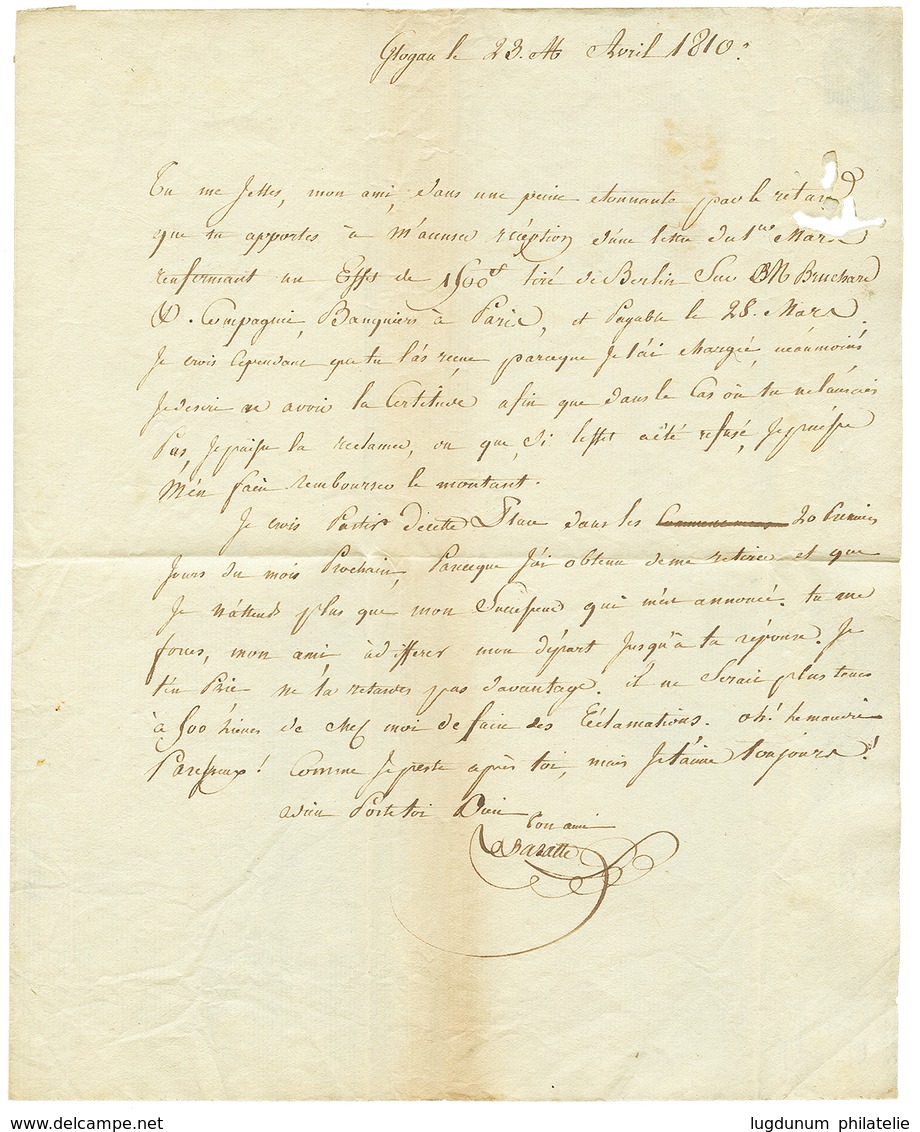 Glogau le 23. Avril 1810.
Tu me jettes, mon ami, dans une peine etonnante par le retard
que tu apportes à m'accuser réception d'une lettre du 1er Mars
renfermant un Effet de 1500# tiré de Berlin Sur
& Compagnie, Banquiers à Paris, et Payable le 28. Mars.
Je crois Cependant que tu l'as reçue parceque Je l'ai chargée, néanmoins
Je desire en avoir la Certitude afin que dans le Cas où tu ne l'aurais
Pas, Je puisse la réclamer, ou que, Si l'effet a été refusé, Je puisse
M'en faire rembourser le montant.
Je crois Partir de cette Place dans les 20 Premiers
Jours du mois Prochain, Parceque J'ai obtenu de me retirer et que
Je n'attends plus que mon Successeur qui m'est annoncé. tu me
forces, mon ami, à differer mon départ Jusqu'à ta réponse. Je
t'en Prie ne la retardes pas davantage. il ne Serait plus tems
à 500 lieues de chez moi de faire des Réclamations. oh! le maudit
Paresseux! Comme Je peste après toi, mais Je t'aime toujours!
adieu Porte toi Bien
Ton ami